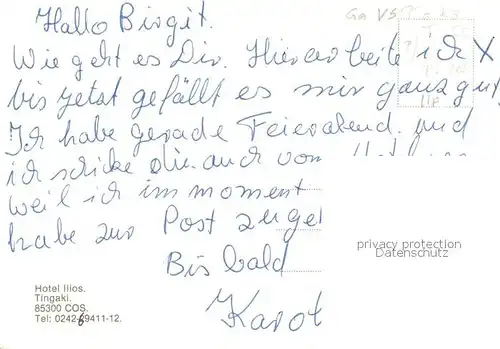 Hallo Birgit.
Wie geht es Dir. Hier arbeite ich X
bis jetzt gefällt es mir ganz gut
Ich habe gerade Feierabend. und
ich schicke die auch vom
weil ich im moment
habe zur Post zu gel
Bis bald
Karot
privacy protection
Datenschutz
Hotel Ilios.
Tingaki.
85300 COS.
Tel: 0242-69411-12.